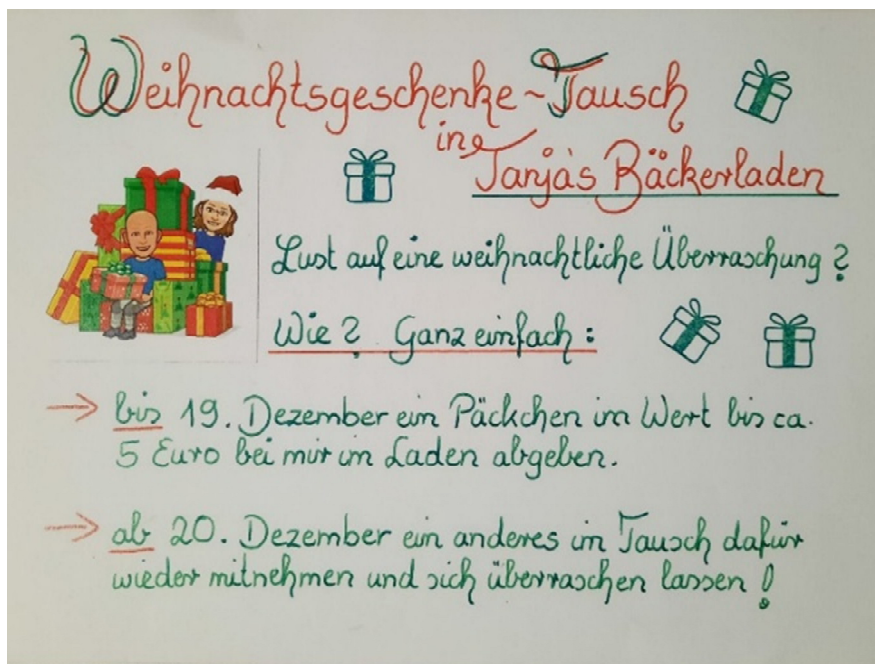 Weihnachtsgeschenke~Tausch
in
Tanja's Bäckerladen
Lust auf eine weihnachtliche Überraschung?
Wie? Ganz einfach:
→ bis 19. Dezember ein Päckchen im Wert bis ca.
5 Euro bei mir im Laden abgeben.
→ ab 20. Dezember ein anderes im Tausch dafür
wieder mitnehmen und sich überraschen lassen!